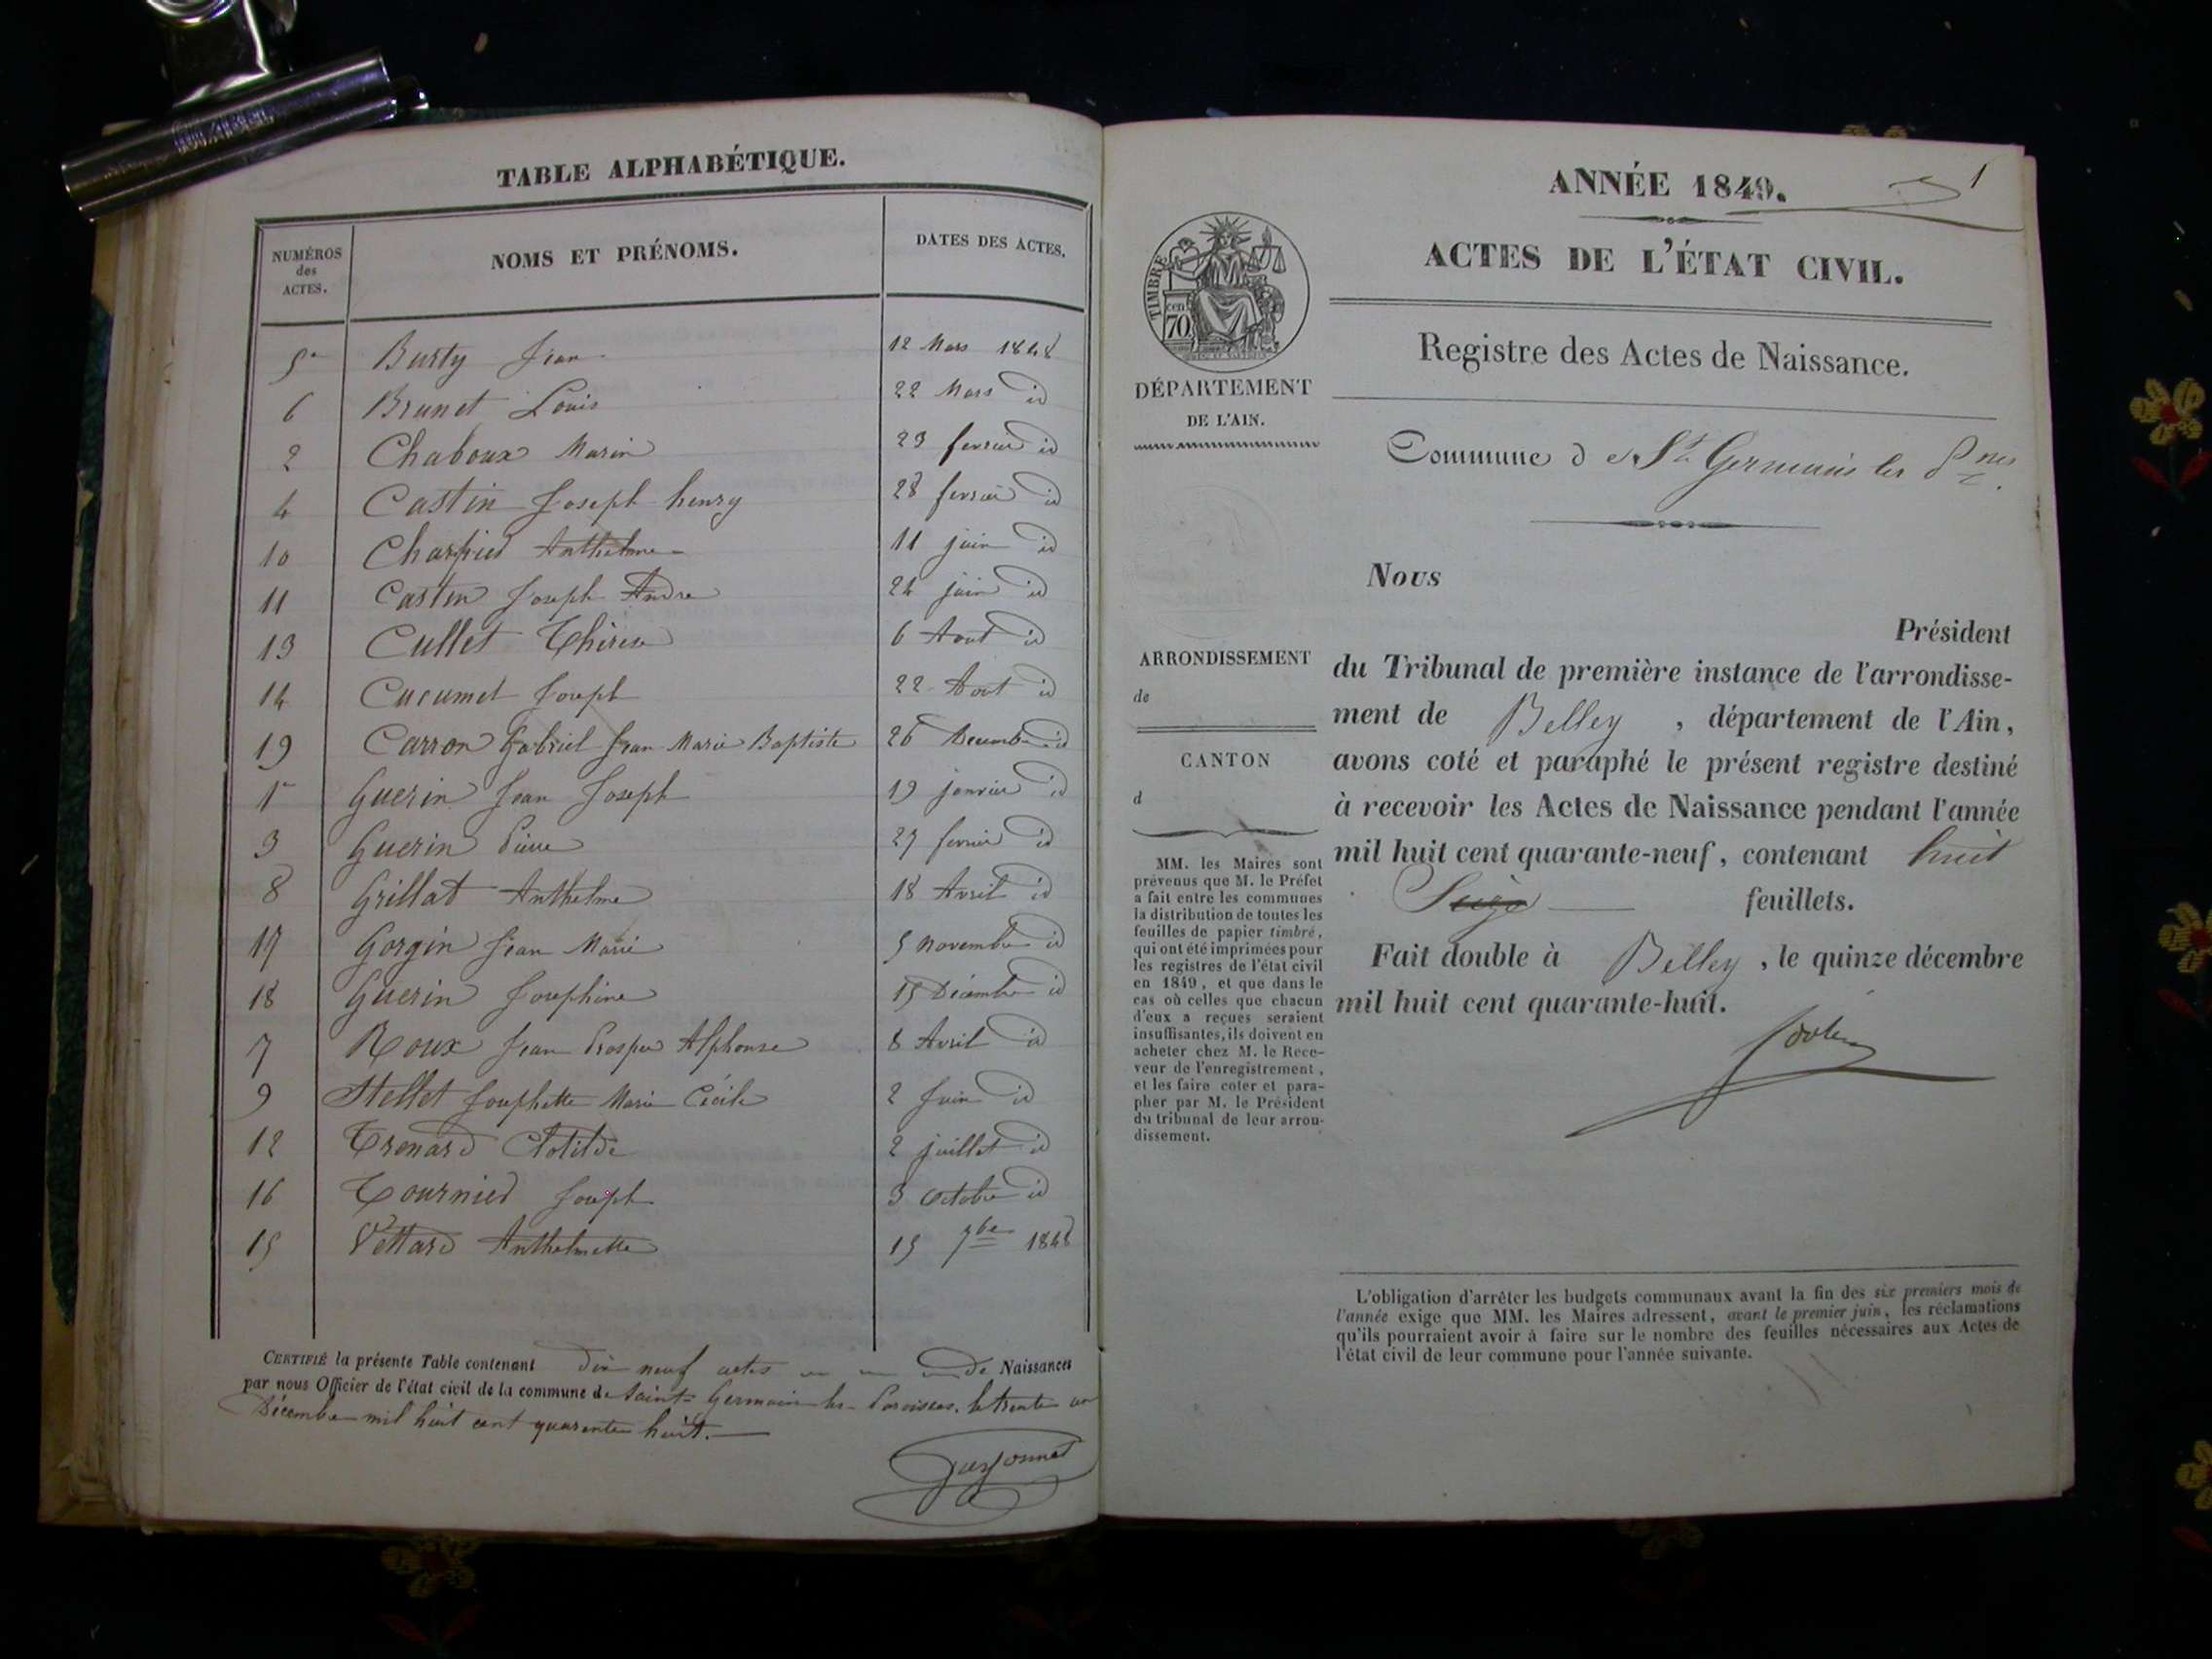 TABLE ALPHABÉTIQUE.
NUMÉROS
des
ACTES.
NOMS ET PRÉNOMS.
DATES DES ACTES.
5 Burty Jean 12 Mars 1848
6 Brunet Louis 22 Mars id
2 Chaboux Marin 23 fevrier id
4 Castin Joseph henry 28 fevrier id
10 Charpied Anthelme 11 juin id
11 Castin Joseph Andre 24 juin id
13 Cullet Thérese 6 Aout id
14 Cucumet Joseph 22 Aout id
19 Carron Gabriel Jean Marie Baptiste 26 Decembre id
1 Guerin Jean Joseph 19 janvier id
3 Guerin Pierre 27 fevrier id
8 Grillat Anthelme 18 Avril id
17 Gorgin Jean Marie 5 novembre id
18 Guerin Josephine 15 Décembre id
7 Roux Jean Prosper Alphonse 8 Avril id
9 Stellet Josephette Marie Cécile 2 Juin id
12 Trenard Clotilde 2 juillet id
16 Tournied Joseph 3 Octobre id
15 Vettard Anthelmette 15 7bre 1848
CERTIFIÉ la présente Table contenant dix neuf actes de Naissances
par nous Officier de l'état civil de la commune de Saint-Germain-les-Paroisses, le trente un
Décembre mil huit cent quarente huit.
ANNÉE 1849.
1
ACTES DE L'ÉTAT CIVIL.
Registre des Actes de Naissance.
TIMBRE
cen
70
DÉPARTEMENT
DE L'AIN.
Commune de St Germain les Pnes
Nous
Président
du Tribunal de première instance de l'arrondisse-
ment de Belley, département de l'Ain,
avons coté et paraphé le présent registre destiné
à recevoir les Actes de Naissance pendant l'année
mil huit cent quarante-neuf, contenant huit
Seize feuillets.
Fait double à Belley, le quinze décembre
mil huit cent quarante-huit.
ARRONDISSEMENT
de
CANTON
d
MM. les Maires sont
prévenus que M. le Préfet
a fait entre les communes
la distribution de toutes les
feuilles de papier timbré,
qui ont été imprimées pour
les registres de l'état civil
en 1849, et que dans le
cas où celles que chacun
d'eux a reçues seraient
insuffisantes, ils doivent en
acheter chez M. le Rece-
veur de l'enregistrement,
et les faire coter et para-
pher par M. le Président
du tribunal de leur arron-
dissement.
L'obligation d'arrêter les budgets communaux avant la fin des six premiers mois de
l'année exige que MM. les Maires adressent, avant le premier juin, les réclamations
qu'ils pourraient avoir à faire sur le nombre des feuilles nécessaires aux Actes de
l'état civil de leur commune pour l'année suivante.